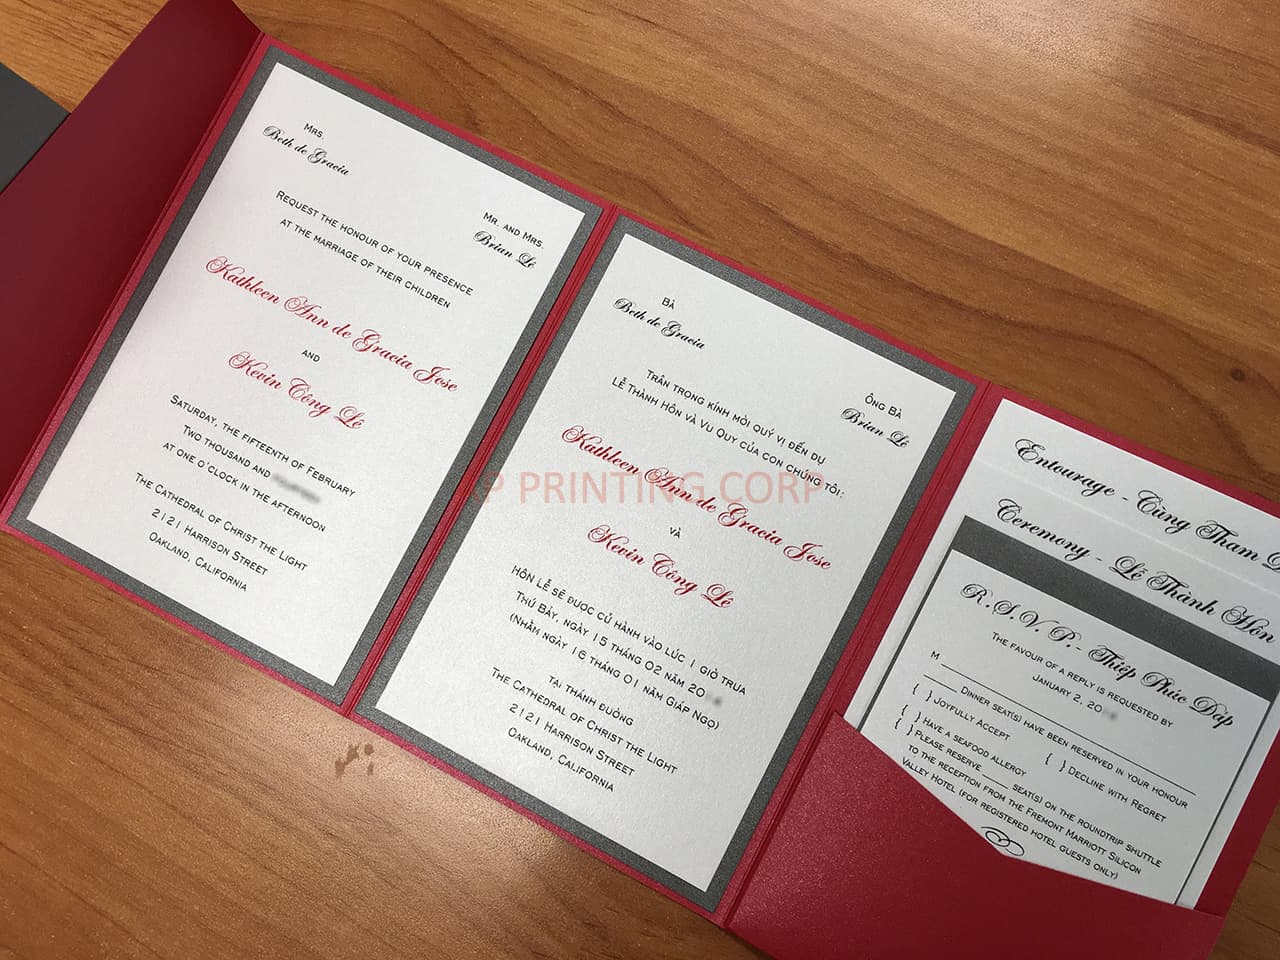 Mrs.
Beth de Gracia
Mr. and Mrs.
Brian Lê
Request the honour of your presence
at the marriage of their children
Kathleen Ann de Gracia Jose
and
Kevin Công Lê
Saturday, the fifteenth of February
Two thousand and
at one o'clock in the afternoon
The Cathedral of Christ the Light
2121 Harrison Street
Oakland, California
Bà
Beth de Gracia
Ông Bà
Brian Lê
Trân trọng kính mời quý vị đến dự
Lễ Thành Hôn và Vu Quy của con chúng tôi:
Kathleen Ann de Gracia Jose
và
Kevin Công Lê
Hôn lễ sẽ được cử hành vào lúc 1 giờ trưa
Thứ Bảy, ngày 15 tháng 02 năm 20
(Nhằm ngày 16 tháng 01 năm Giáp Ngọ)
tại Thánh Đường
The Cathedral of Christ the Light
2121 Harrison Street
Oakland, California
AP PRINTING CORP
Entourage - Cùng Tham
Ceremony - Lễ Thành Hôn
R.S.V.P. - Thiệp Phúc Đáp
The favour of a reply is requested by
January 2, 20
M
Dinner seat(s) have been reserved in your honour
{ } Joyfully Accept { } Decline with Regret
{ } Have a seafood allergy
{ } Please reserve ____ seat(s) on the roundtrip shuttle
to the reception from the Fremont Marriott Silicon
Valley Hotel (for registered hotel guests only)